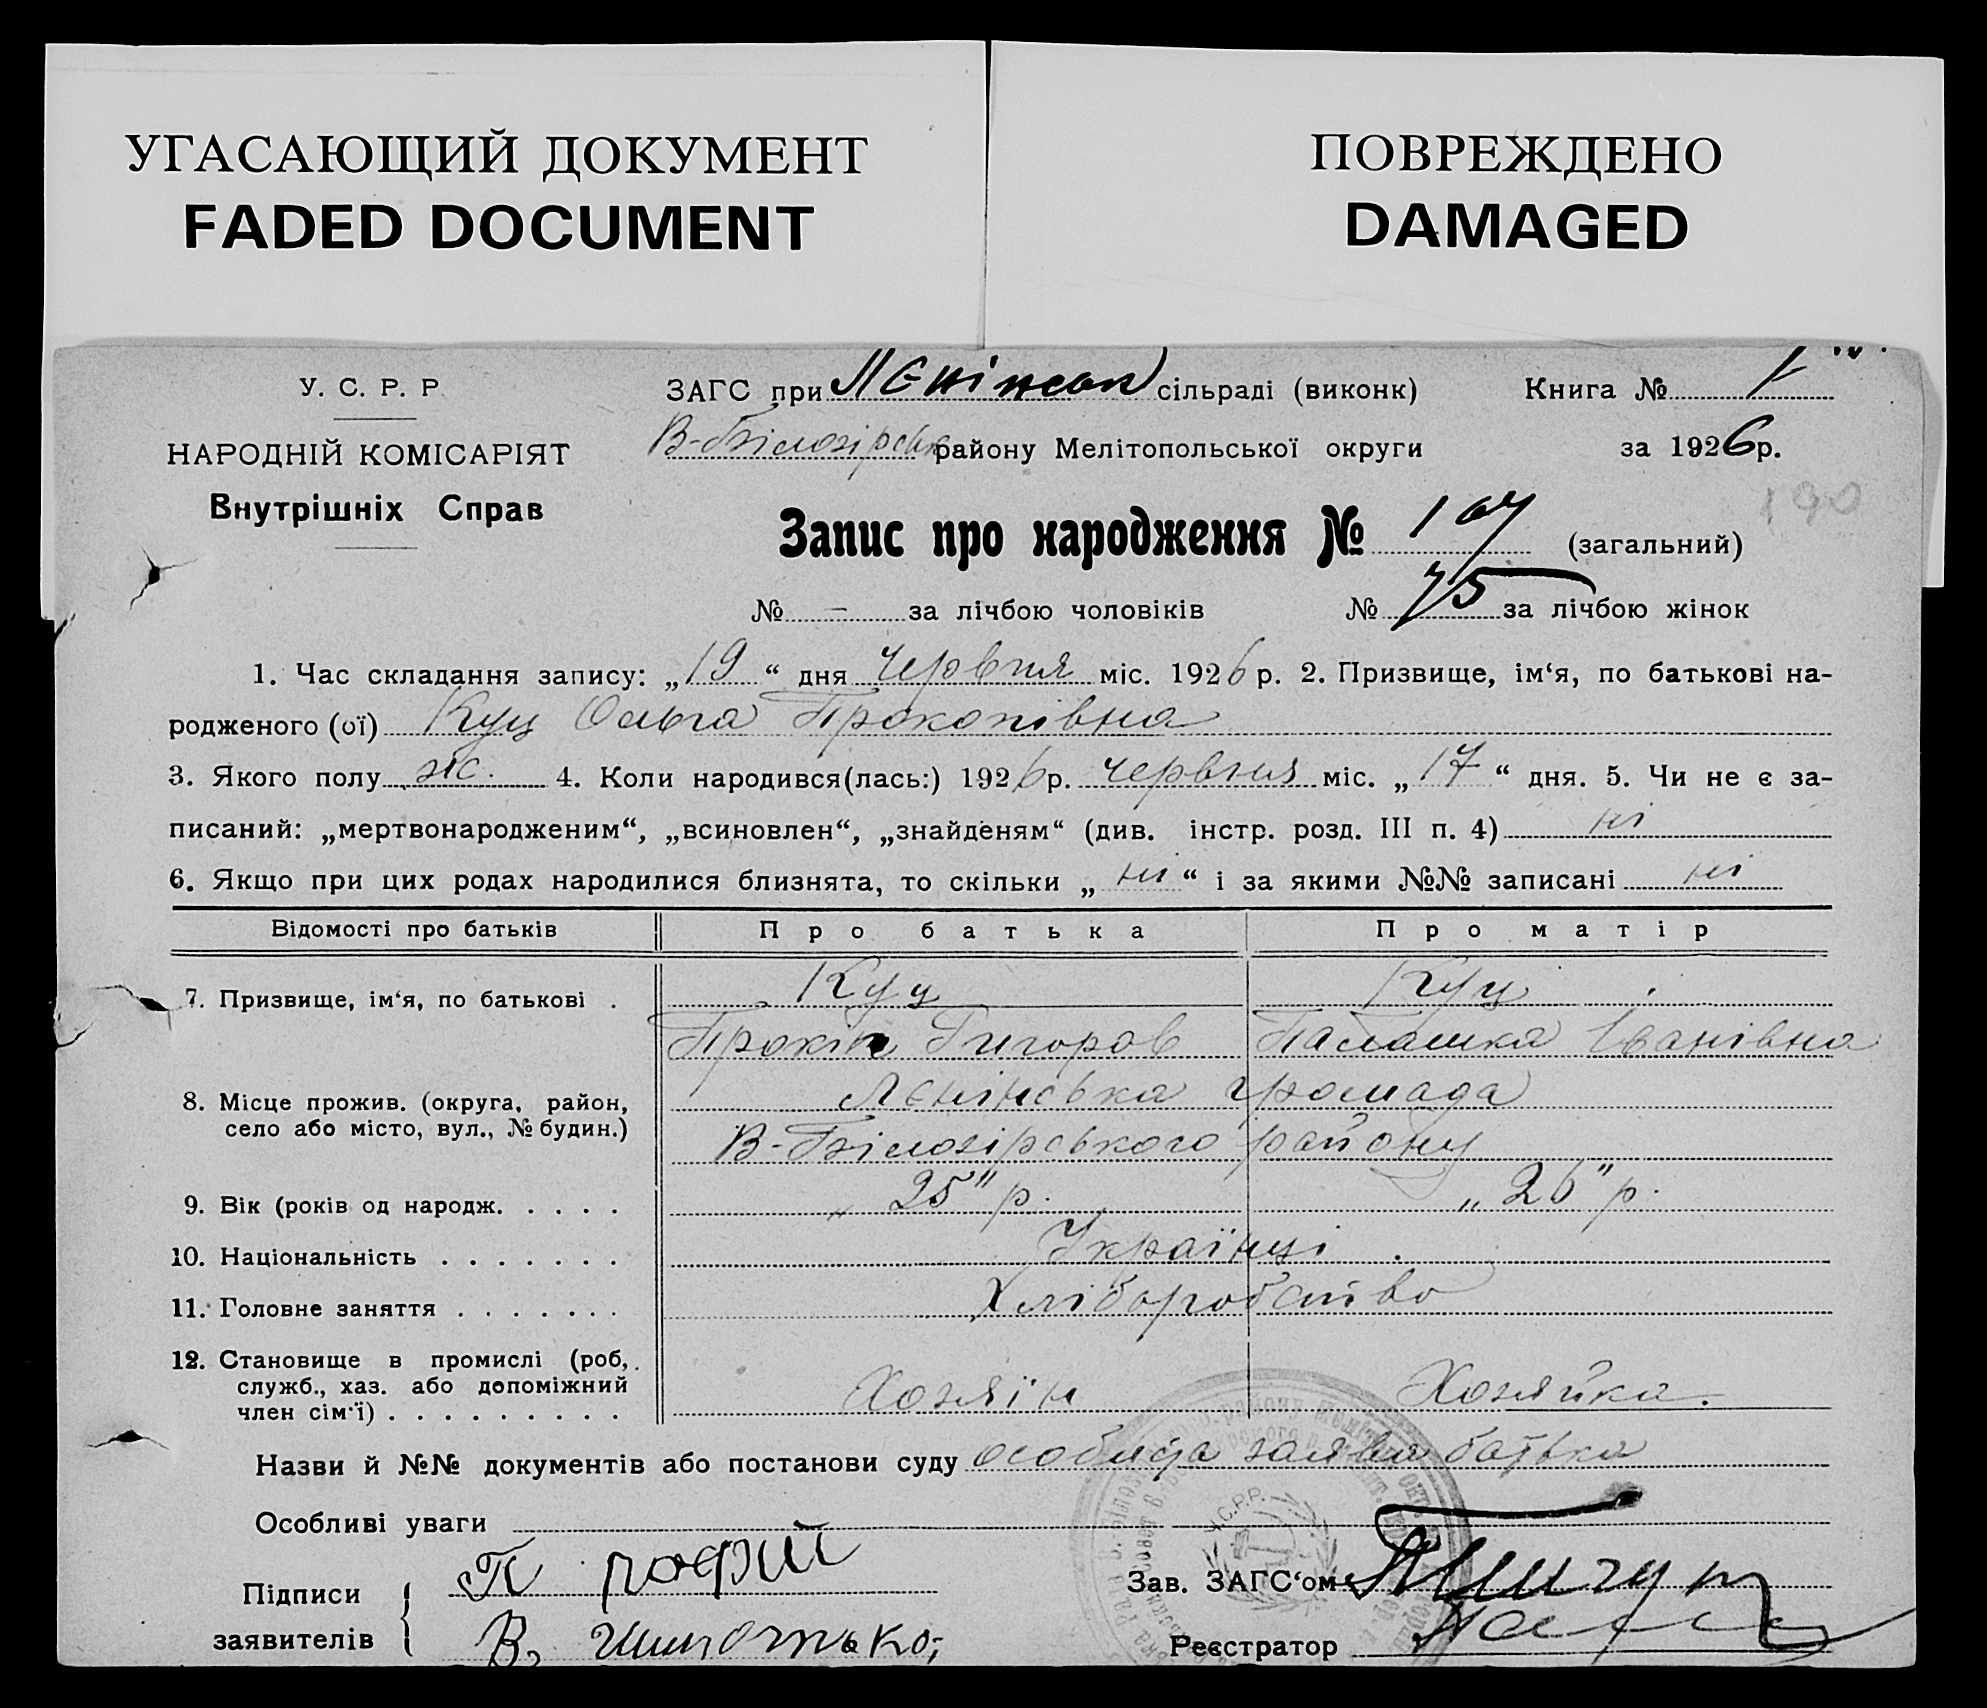 УГАСАЮЩИЙ ДОКУМЕНТ
FADED DOCUMENT
ПОВРЕЖДЕНО
DAMAGED
У. С. Р. Р.
НАРОДНІЙ КОМІСАРІЯТ
Внутрішніх Справ
ЗАГС при Лєнінськ сільраді (виконк)
В-Білозірськ району Мелітопольської округи
Книга № 1
за 1926р.
190
Запис про народження № 107 (загальний)
№ – за лічбою чоловіків № 75 за лічбою жінок
1. Час складання запису: „19“ дня Червня міс. 1926р. 2. Призвище, ім‘я, по батькові на-
родженого (ої) Куц Ольга Прокопівна
3. Якого полу ж. 4. Коли народився(лась:) 1926р. червня міс. „17“ дня. 5. Чи не є за-
писаний: „мертвонародженим“, „всиновлен“, „знайденям“ (див. інстр. розд. III п. 4) ні
6. Якщо при цих родах народилися близнята, то скільки „ні“ і за якими №№ записані ні
Відомості про батьків Про батька Про матір
7. Призвище, ім‘я, по батькові . Куц Куц
Прокіп Григоров Палашка Іванівна
8. Місце прожив. (округа, район, Лєнінська громада
село або місто, вул., № будин.) В-Білозірського району
9. Вік (років од народж. . . . . „25“ р. „26“ р.
10. Національність . . . . . . . Українці
11. Головне заняття . . . . . . . Хліборобство
12. Становище в промислі (роб,
служб., хаз. або допоміжний
член сім‘ї) . . . . . . . . . Хозяїн Хозяйка.
Назви й №№ документів або постанови суду особиста заява батька
Особливі уваги
Підписи
заявителів
Зав. ЗАГС‘ом
Реєстратор
У.С.Р.Р.